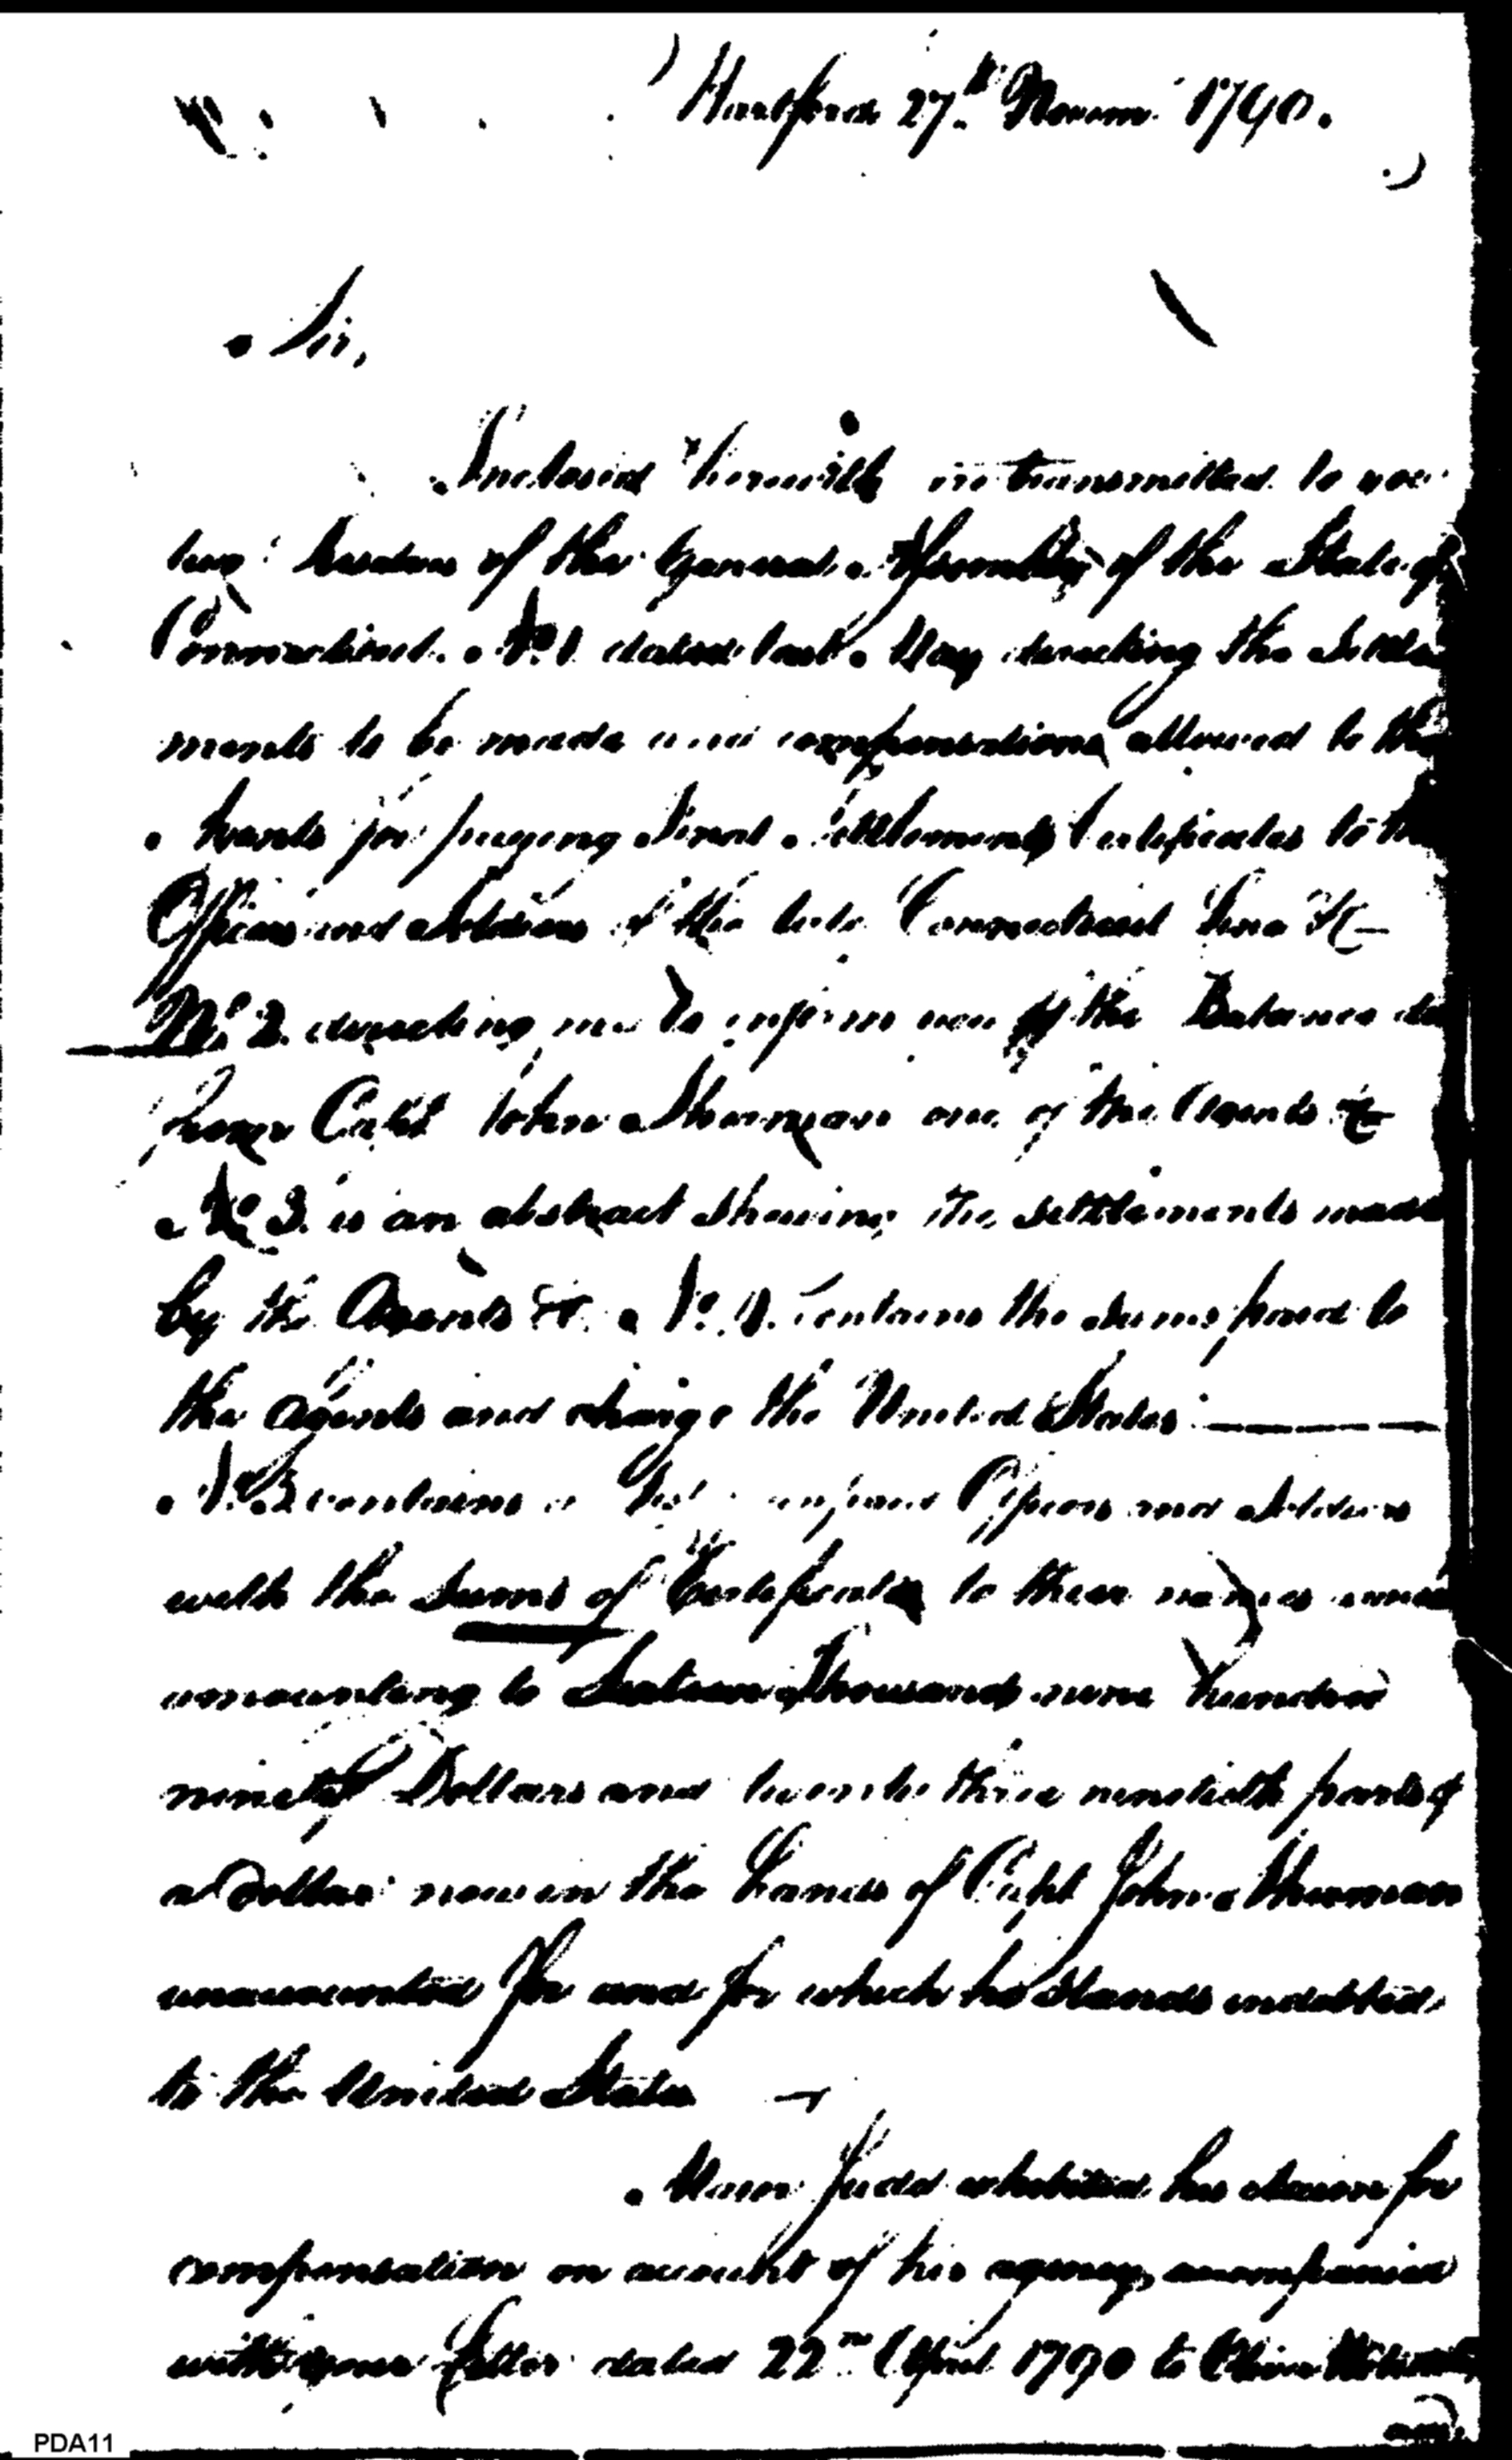 Hartford 27th Novem 1790.
Sir,
Inclosed herewith is transmitted to you
two of the General Assembly of the State of
Connecticut. No. 1 dated last May directing the Settle
ments to be made and compensations allowed to the
Agents for paying Final Settlement Certificates to the
Officers and Soldiers of the late Connecticut Line &c
No. 2. directing me to inform you of the Balance due
from Capt John Sherman one of the Agents &c
No 3. is an abstract shewing the settlements made
by the Agents &c. No. 4. Contains the sums paid to
the agents and charge the United States
No. 5 contains a List unpaid Officers and Soldiers
with the Sums of Certificates to their names
amounting to Sixteen Thousand nine hundred
ninety Dollars and twenty three ninetieth parts of
a Dollar now in the hands of Capt John Sherman
unaccounted for and for which he Stands indebted
to the United States
Major Judd exhibited his claim for
compensation on account of his agency accompanied
with your Letter dated 22nd April 1790 to Oliver
PDA11